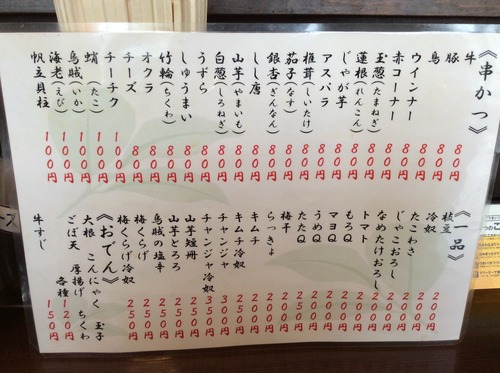 《串かつ》
牛 80円
豚 80円
鳥 80円
ウインナー 80円
赤コーナー 80円
玉葱(たまねぎ) 80円
蓮根(れんこん) 80円
じゃが芋 80円
アスパラ 80円
椎茸(しいたけ) 80円
茄子(なす) 80円
銀杏(ぎんなん) 80円
しし唐 80円
山芋(やまいも) 80円
白葱(しろねぎ) 80円
うずら 80円
しゅうまい 80円
竹輪(ちくわ) 80円
オクラ 80円
チーズ 80円
チーチク 100円
蛸(たこ) 100円
烏賊(いか) 100円
海老(えび) 100円
帆立貝柱 100円
《一品》
枝豆 200円
冷奴 200円
たこわさ 200円
じゃこおろし 200円
なめたけおろし 200円
トマト 200円
もろQ 200円
マヨQ 200円
うめQ 200円
たたQ 200円
梅干 200円
らっきょ 200円
キムチ 200円
キムチ冷奴 250円
チャンジャ 300円
チャンジャ冷奴 350円
山芋短冊 250円
山芋とろろ 250円
烏賊の塩辛 200円
梅くらげ 200円
梅くらげ冷奴 250円
《おでん》
大根 こんにゃく 玉子
ごぼ天 厚揚げ ちくわ
各種 120円
牛すじ 150円